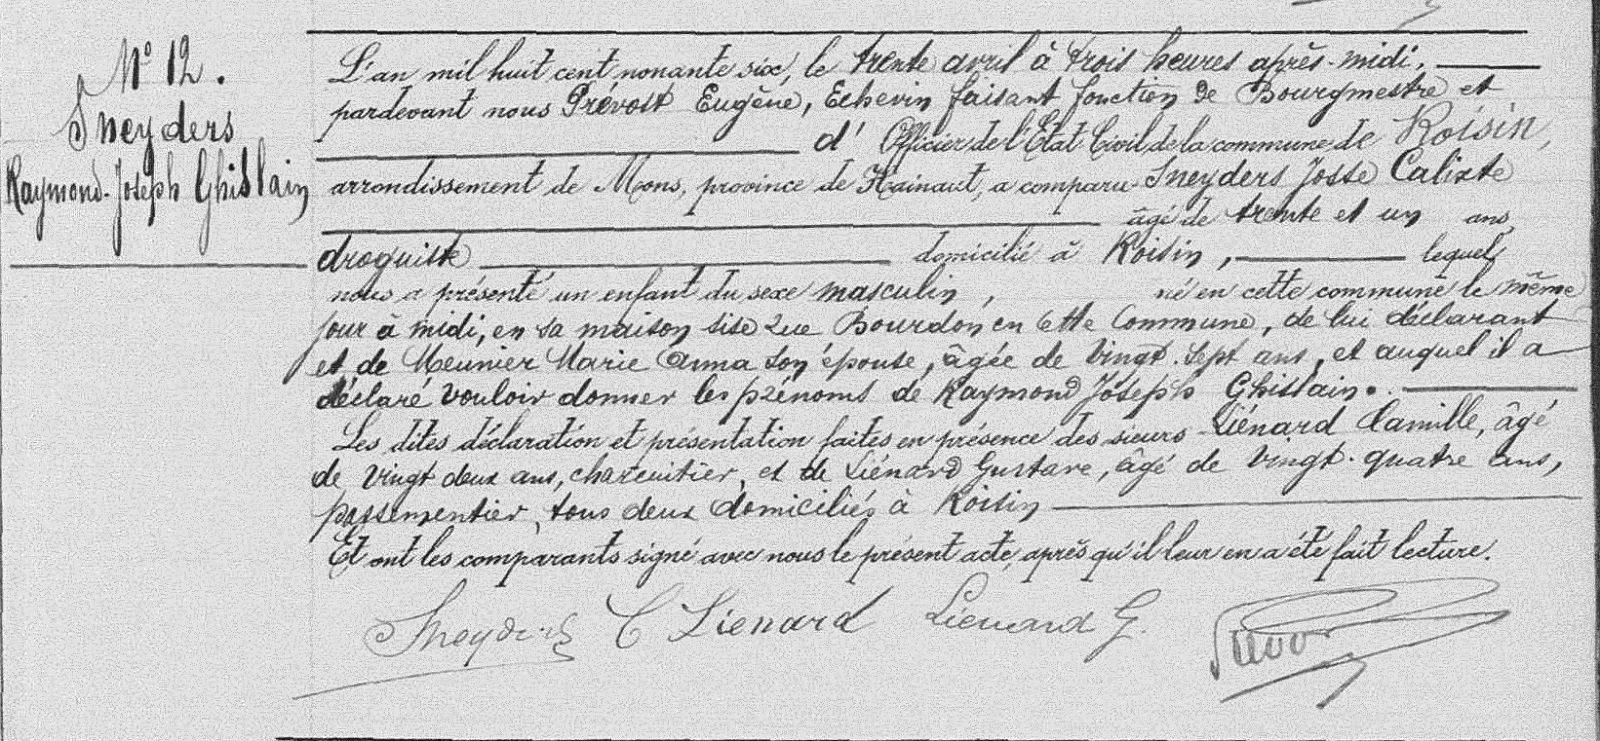 N° 12.
Sneyders
Raymond-Joseph Ghislain
L'an mil huit cent nonante six, le trente avril à trois heures après-midi,
pardevant nous Prévost Eugène, Echevin faisant fonction de Bourgmestre et
d' Officier de l'Etat Civil de la commune de Roisin,
arrondissement de Mons, province de Hainaut, a comparu Sneyders Josse Calixte
âgé de trente et un ans,
droguiste domicilié à Roisin, lequel
nous a présenté un enfant du sexe masculin, né en cette commune le même
jour à midi, en sa maison sise rue Bourdon en cette Commune, de lui déclarant
et de Meunier Marie Anna son épouse, âgée de vingt-sept ans, et auquel il a
déclaré vouloir donner les prénoms de Raymond Joseph Ghislain.
Les dites déclaration et présentation faites en présence des sieurs Liénard Camille, âgé
de vingt deux ans, charcuitier, et de Liénard Gustave, âgé de vingt-quatre ans,
passementier, tous deux domiciliés à Roisin
Et ont les comparants signé avec nous le présent acte, après qu'il leur en a été fait lecture.
Sneyders C Lienard Lienard G. Prevo